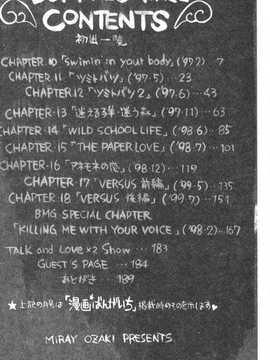 CONTENTS
初出一覧
CHAPTER・10「swimin in your body」('97・2) 7
CHAPTER・11「ツミトバツ」('97・5)…23
CHAPTER・12「ツミトバツ2」('97・6)…43
CHAPTER・13「迷える羊・迷う私」('97・11)…63
CHAPTER・14「WILD SCHOOL LIFE」('98・6)…85
CHAPTER・15「THE PAPER LOVE」('98・7)…101
CHAPTER・16「アネモネの恋」('98・12)…119
CHAPTER・17「VERSUS 前編」('99・5)…135
CHAPTER・18「VERSUS 後編」('99・7)…151
BMG SPECIAL CHAPTER
「KILLING ME WITH YOUR VOICE」('98・2)…167
TALK and LOVE×2 Show … 183
GUEST'S PAGE … 184
あとがき … 189
★上記の月号は「漫画ばんがいち」掲載時のものを示します♥
MIRAY OZAKI PRESENTS